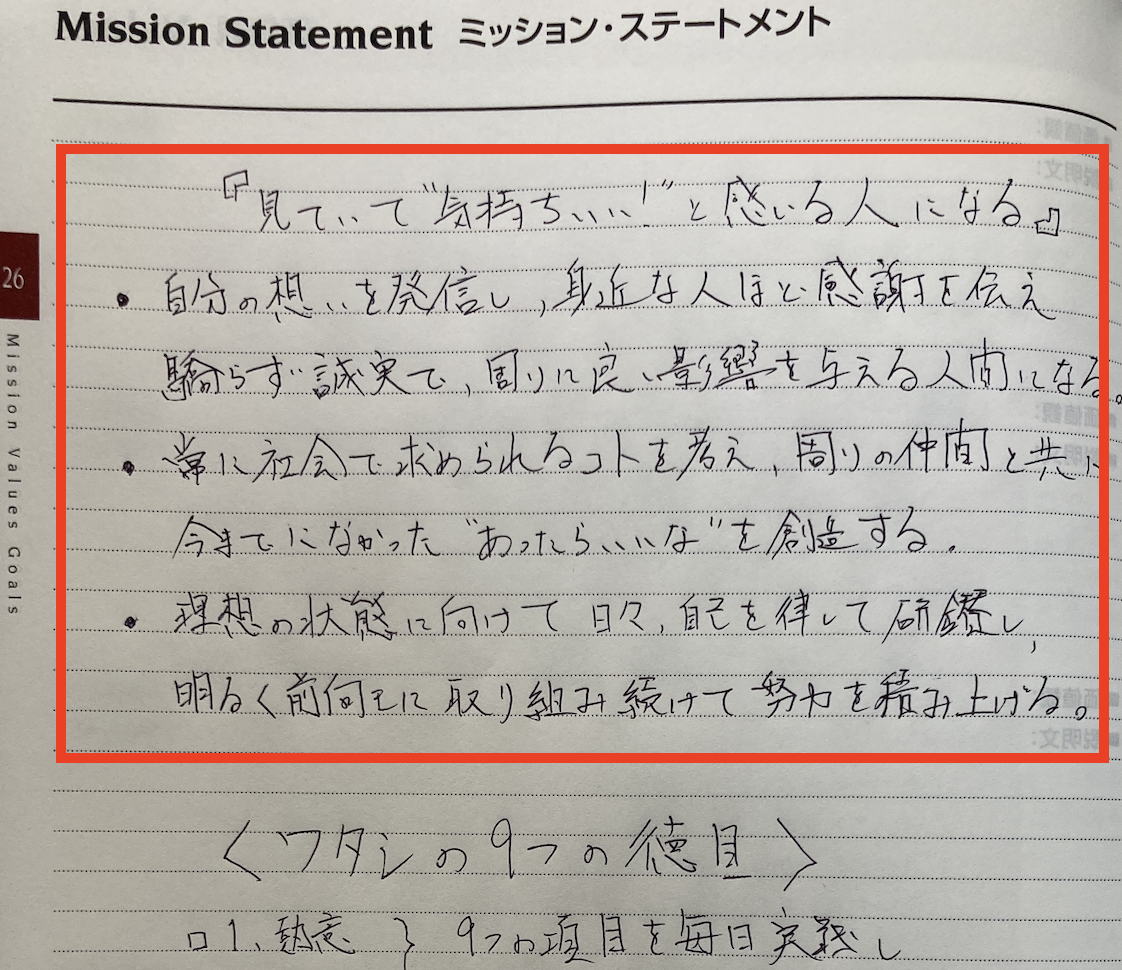 Mission Statement ミッション・ステートメント
『見ていて"気持ちいい!"と感いる人になる』
・自分の想いを発信し,身近な人ほど感謝を伝え
驕らず誠実で,周りに良い影響を与える人間になる。
・常に社会で求められるコトを考え,周りの仲間と共に
今までになかった"あったらいいな"を創造する.
・理想の状態に向けて日々,自己を律して研鑽し,
明るく前向きに取り組み続けて努力を積み上げる。
〈ワタシの9つの徳目〉
□1、熱意 } 9つの項目を毎日実践し
26
Mission Values Goals
価値観:
説明文:
価値観
説明
価値観
説明文: